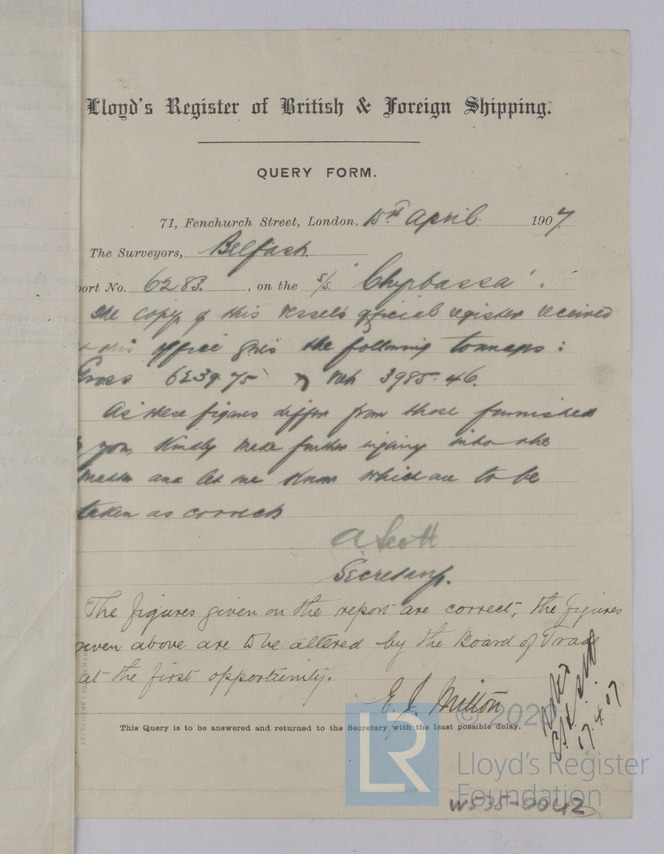 Lloyd's Register of British & Foreign Shipping.
QUERY FORM.
71, Fenchurch Street, London. 15th April 1907
The Surveyors, Belfast.
ort No. 6283. , on the S/S. "Chyebassa".
The copy of this vessel's official register received
this office gives the following tonnages:
Gross 6239.75 Net 3985.46.
As these figures differ from those furnished
you, kindly make further inquiry into the
matter and let me know which are to be
taken as correct
A Scott
Secretary.
The figures given on the report are correct, the figures
given above are to be altered by the Board of Trade
at the first opportunity.
E. J. Milton
17.4.07
This Query is to be answered and returned to the Secretary with the least possible delay.
© 2020
LR
Lloyd's Register
Foundation
W535-0042